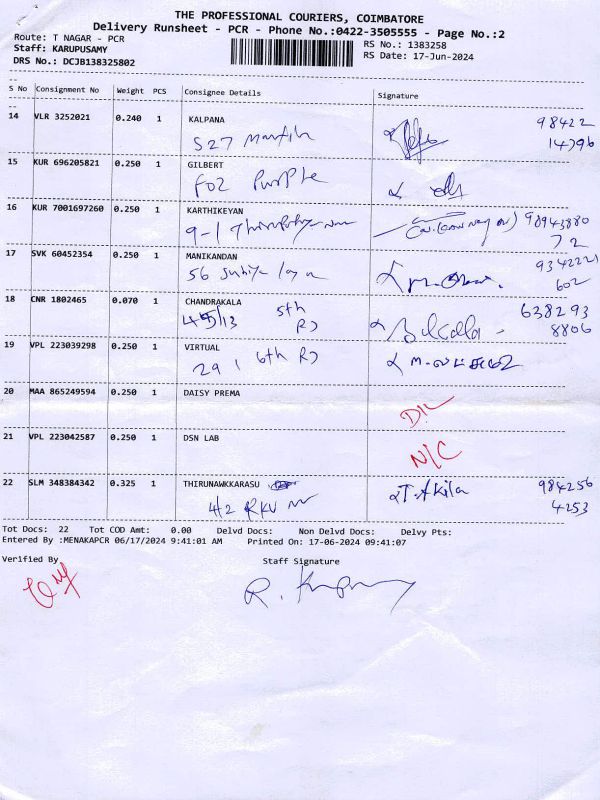 THE PROFESSIONAL COURIERS, COIMBATORE
Delivery Runsheet - PCR - Phone No.:0422-3505555 - Page No.:2
Route: T NAGAR - PCR
Staff: KARUPUSAMY
DRS No.: DCJB138325802
RS No.: 1383258
RS Date: 17-Jun-2024
S No Consignment No Weight PCS Consignee Details Signature
14 VLR 3252021 0.240 1 KALPANA 98422
527 14796
15 KUR 696205821 0.250 1 GILBERT
F02 Purple
16 KUR 7001697260 0.250 1 KARTHIKEYAN 98943880
9-1 72
17 SVK 60452354 0.250 1 MANIKANDAN 9342221
56 602
18 CNR 1802465 0.070 1 CHANDRAKALA 638293
5th
RD 8806
19 VPL 223039298 0.250 1 VIRTUAL
29 1 6th RD
20 MAA 865249594 0.250 1 DAISY PREMA
D/L
21 VPL 223042587 0.250 1 DSN LAB
N/C
22 SLM 348384342 0.325 1 THIRUNAWKKARASU T. Akila 984256
4/2 RKV 4253
Tot Docs: 22 Tot COD Amt: 0.00 Delvd Docs: Non Delvd Docs: Delvy Pts:
Entered By :MENAKAPCR 06/17/2024 9:41:01 AM Printed On: 17-06-2024 09:41:07
Verified By Staff Signature